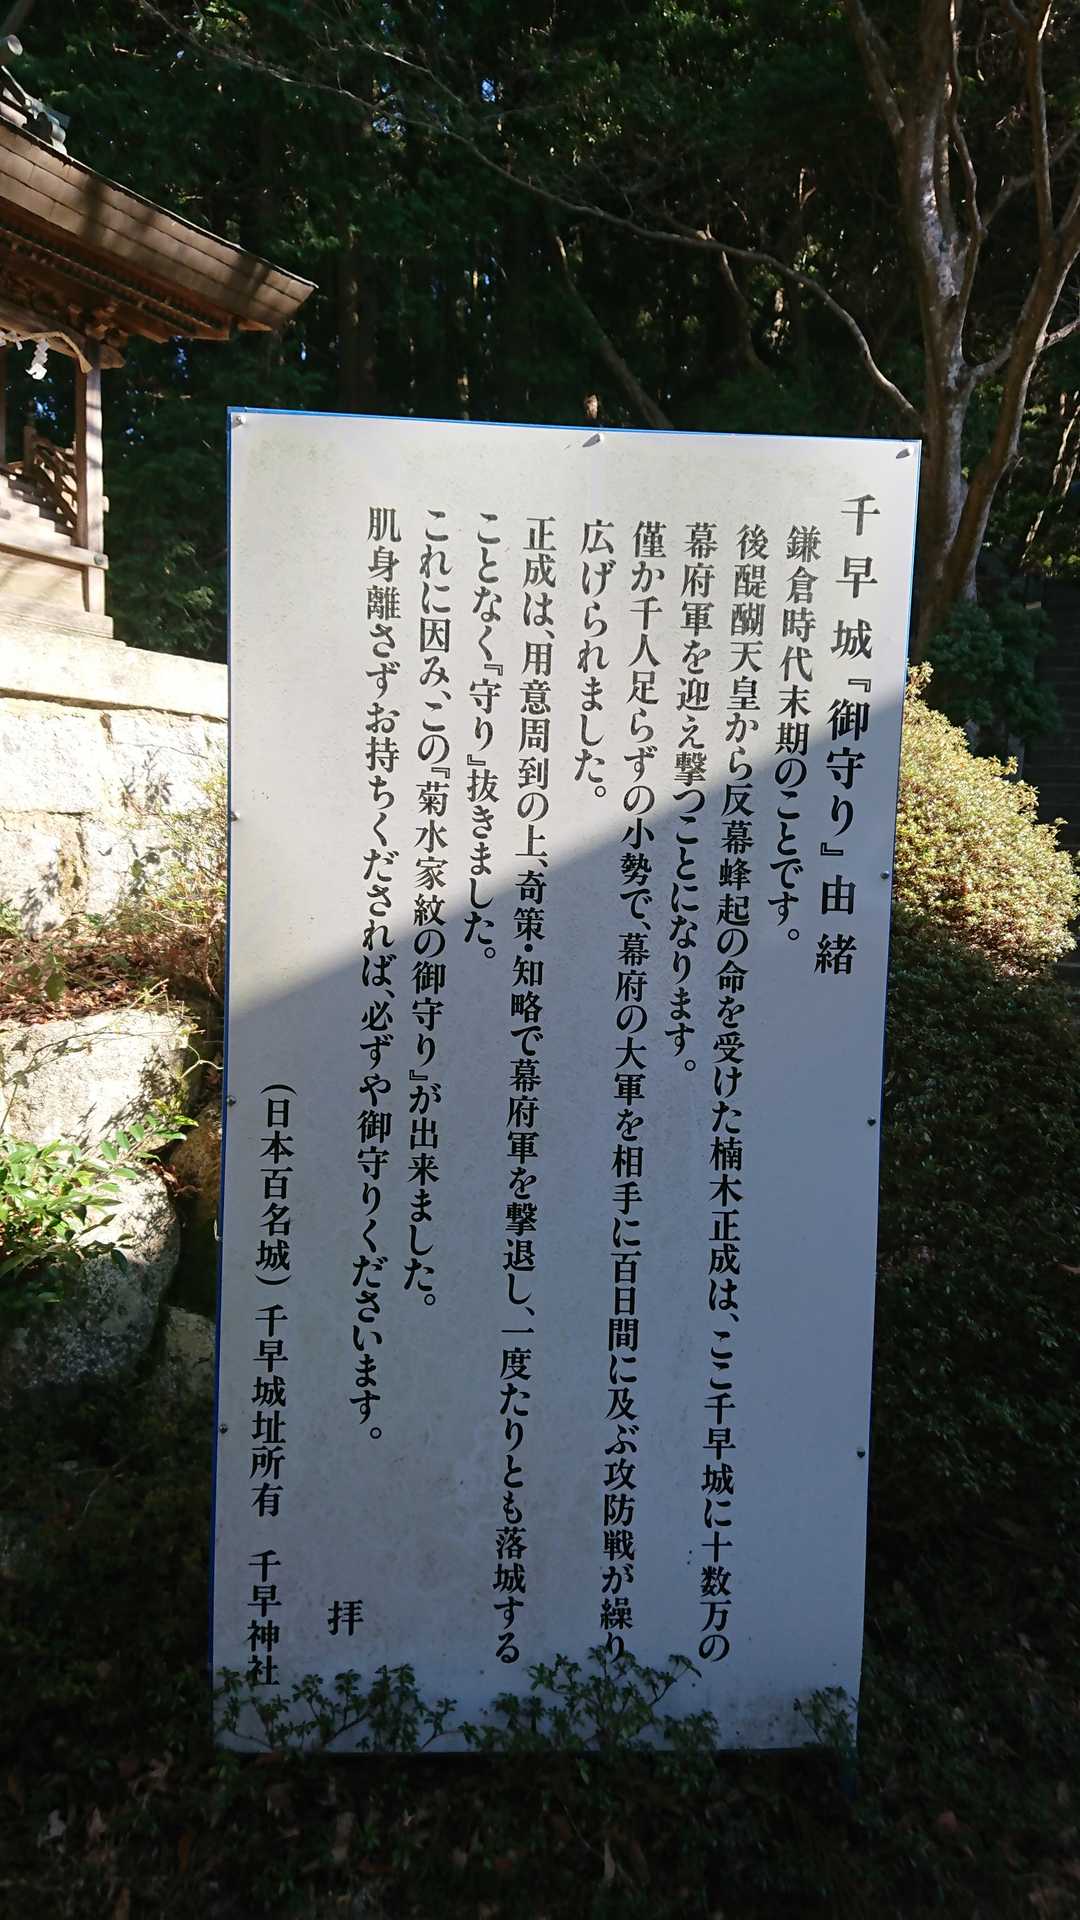 千早城『御守り』由緒
鎌倉時代末期のことです。
後醍醐天皇から反幕蜂起の命を受けた楠木正成は、ここ千早城に十数万の
幕府軍を迎え撃つことになります。
僅か千人足らずの小勢で、幕府の大軍を相手に百日間に及ぶ攻防戦が繰り
広げられました。
正成は、用意周到の上、奇策・知略で幕府軍を撃退し、一度たりとも落城する
ことなく『守り』抜きました。
これに因み、この『菊水家紋の御守り』が出来ました。
肌身離さずお持ちくだされば、必ずや御守りくださいます。
拝
(日本百名城) 千早城址所有 千早神社